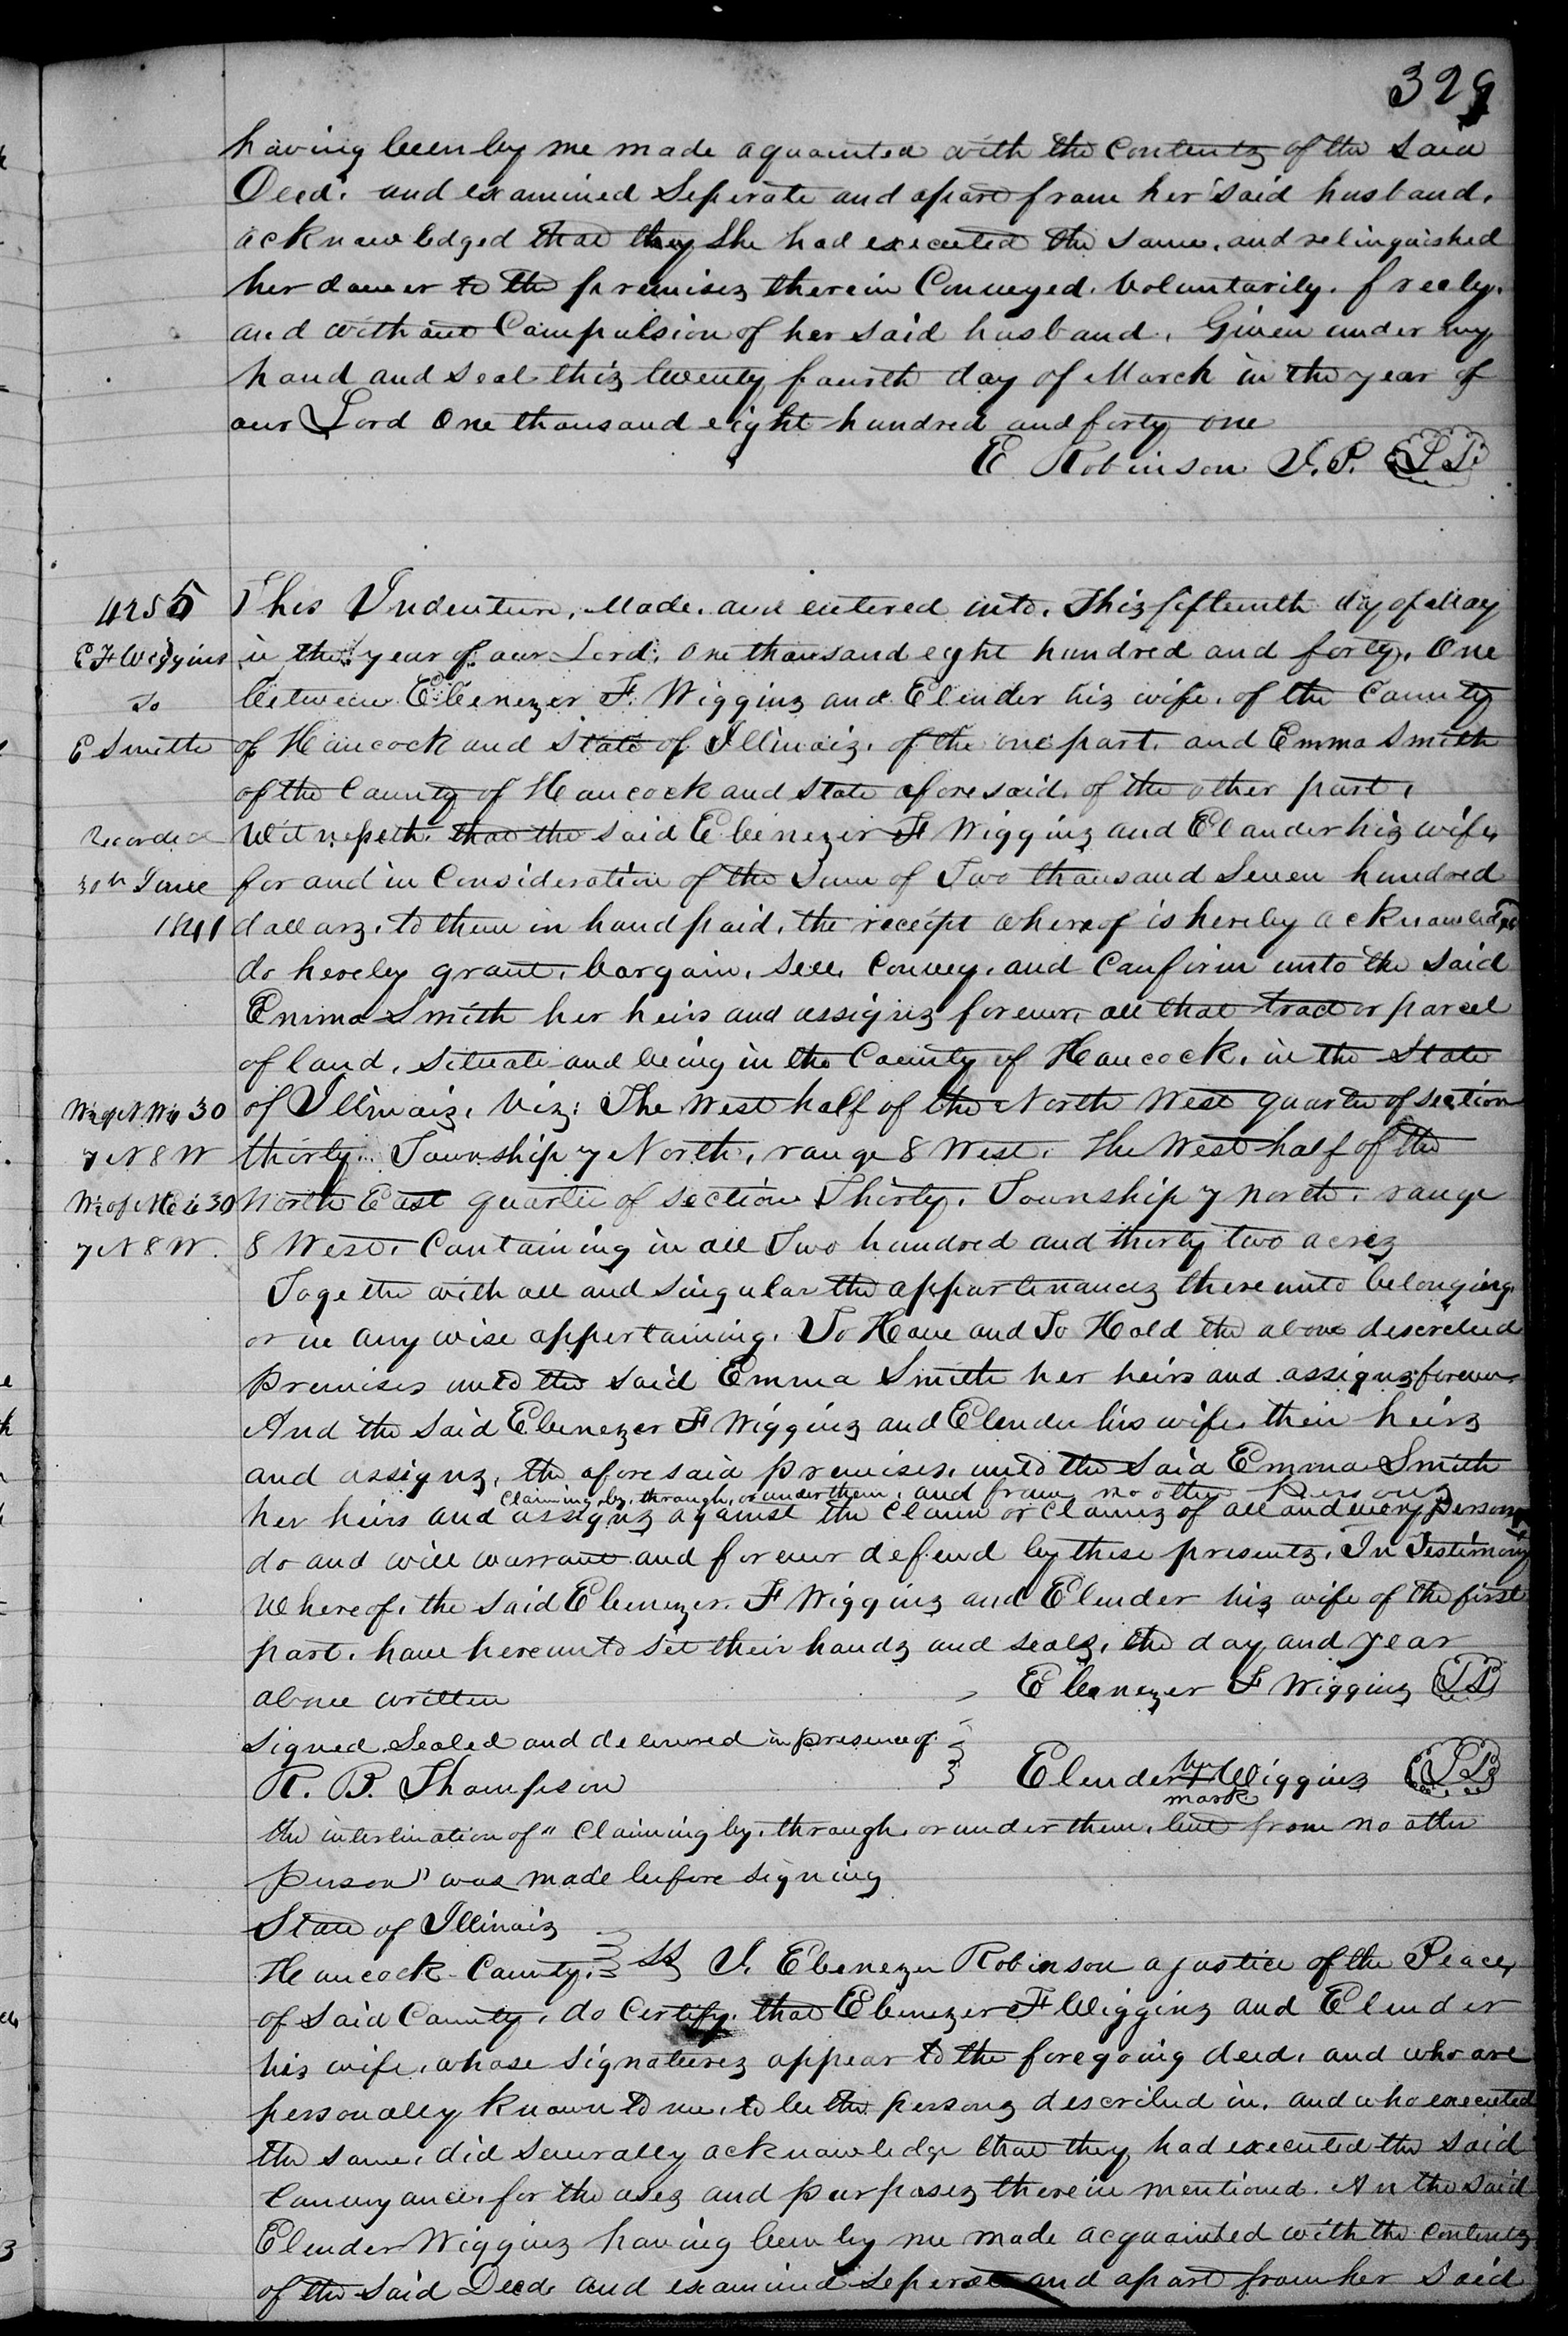 329
having been by me made aquainted with the contents of the said
Deed. and examined Seperate and apart from her said husband.
acknowledged that they She had executed the same, and relinquished
her dower to the premises therein Conveyed. Voluntarily. freely.
and without Compulsion of her said husband. Given under my
hand and seal this twenty fourth day of March in the year of
our Lord One thousand eight hundred and forty one
E Robinson J.P.
4255
E F Wiggins
to
E Smith
Recorded
30th June
1841
This Indenture, Made. and entered into. This fifteenth day of May
in the year of our Lord. One thousand eight hundred and forty. One
between Ebenezer F. Wiggins and Elender his wife. of the County
of Hancock and State of Illinois. of the one part. and Emma Smith
of the County of Hancock and State aforesaid. of the other part.
Witnesseth. that the said Ebenezer F Wiggins and Elander his wife,
for and in Consideration of the Sum of Two thousand Seven hundred
dollars. to them in hand paid. the receipt whereof is hereby acknowledged
do hereby grant. bargain. sell. Convey. and Confirm unto the said
Emma Smith her heirs and assigns forever, all that tract or parcel
of land. Situate and being in the County of Hancock. in the State
W½ of N W ¼ 30
7 N 8 W
W½ of N E ¼ 30
7 N 8 W.
of Illinois. Viz: The West half of the North West quarter of section
thirty. Township 7 North, range 8 West. The West half of the
North East quarter of section Thirty. Township 7 north. range
8 West. Containing in all Two hundred and thirty two acres
Togethe with all and singular the appurtinances thereunto belonging
or in any wise appertaining. To Have and To Hold the above described
premises unto the said Emma Smith her heirs and assigns forever.
And the said Ebenezer F Wiggins and Elender his wife. their heirs
and assigns, the aforesaid premises. unto the said Emma Smith
Claiming, by, through, or under them. and from no other Persons
her heirs and assigns against the claim or claims of all and every persons
do and will warrant and forever defend by these presents. In Testimony
Whereof. the said Ebenezer. F Wiggins and Elender his wife of the first
part. have hereunto set their hands and seals, the day and year
above written
Ebenezer F Wiggins
Signed Sealed and delivered in presence of
R. B. Thompson
her
Elender + Wiggins
mark
the interlination of " Claiming by. through. or under them. but from no other
person" was made before signing
State of Illinois
Hancock County. SS I. Ebenezer Robinson a justice of the Peace,
of said County. do Certify. that Ebenezer F Wiggins and Elender
his wife. whose signatures appear to the foregoing deed. and who are
personally known to me. to be the persons described in. and who executed
the same. did severally acknowledge that they had executed the said
Conveyance. for the uses and purposes therein mentioned. An the said
Elender Wiggins having been by me made acquainted with the contents
of the said Deed. and examined seperate and apart from her said